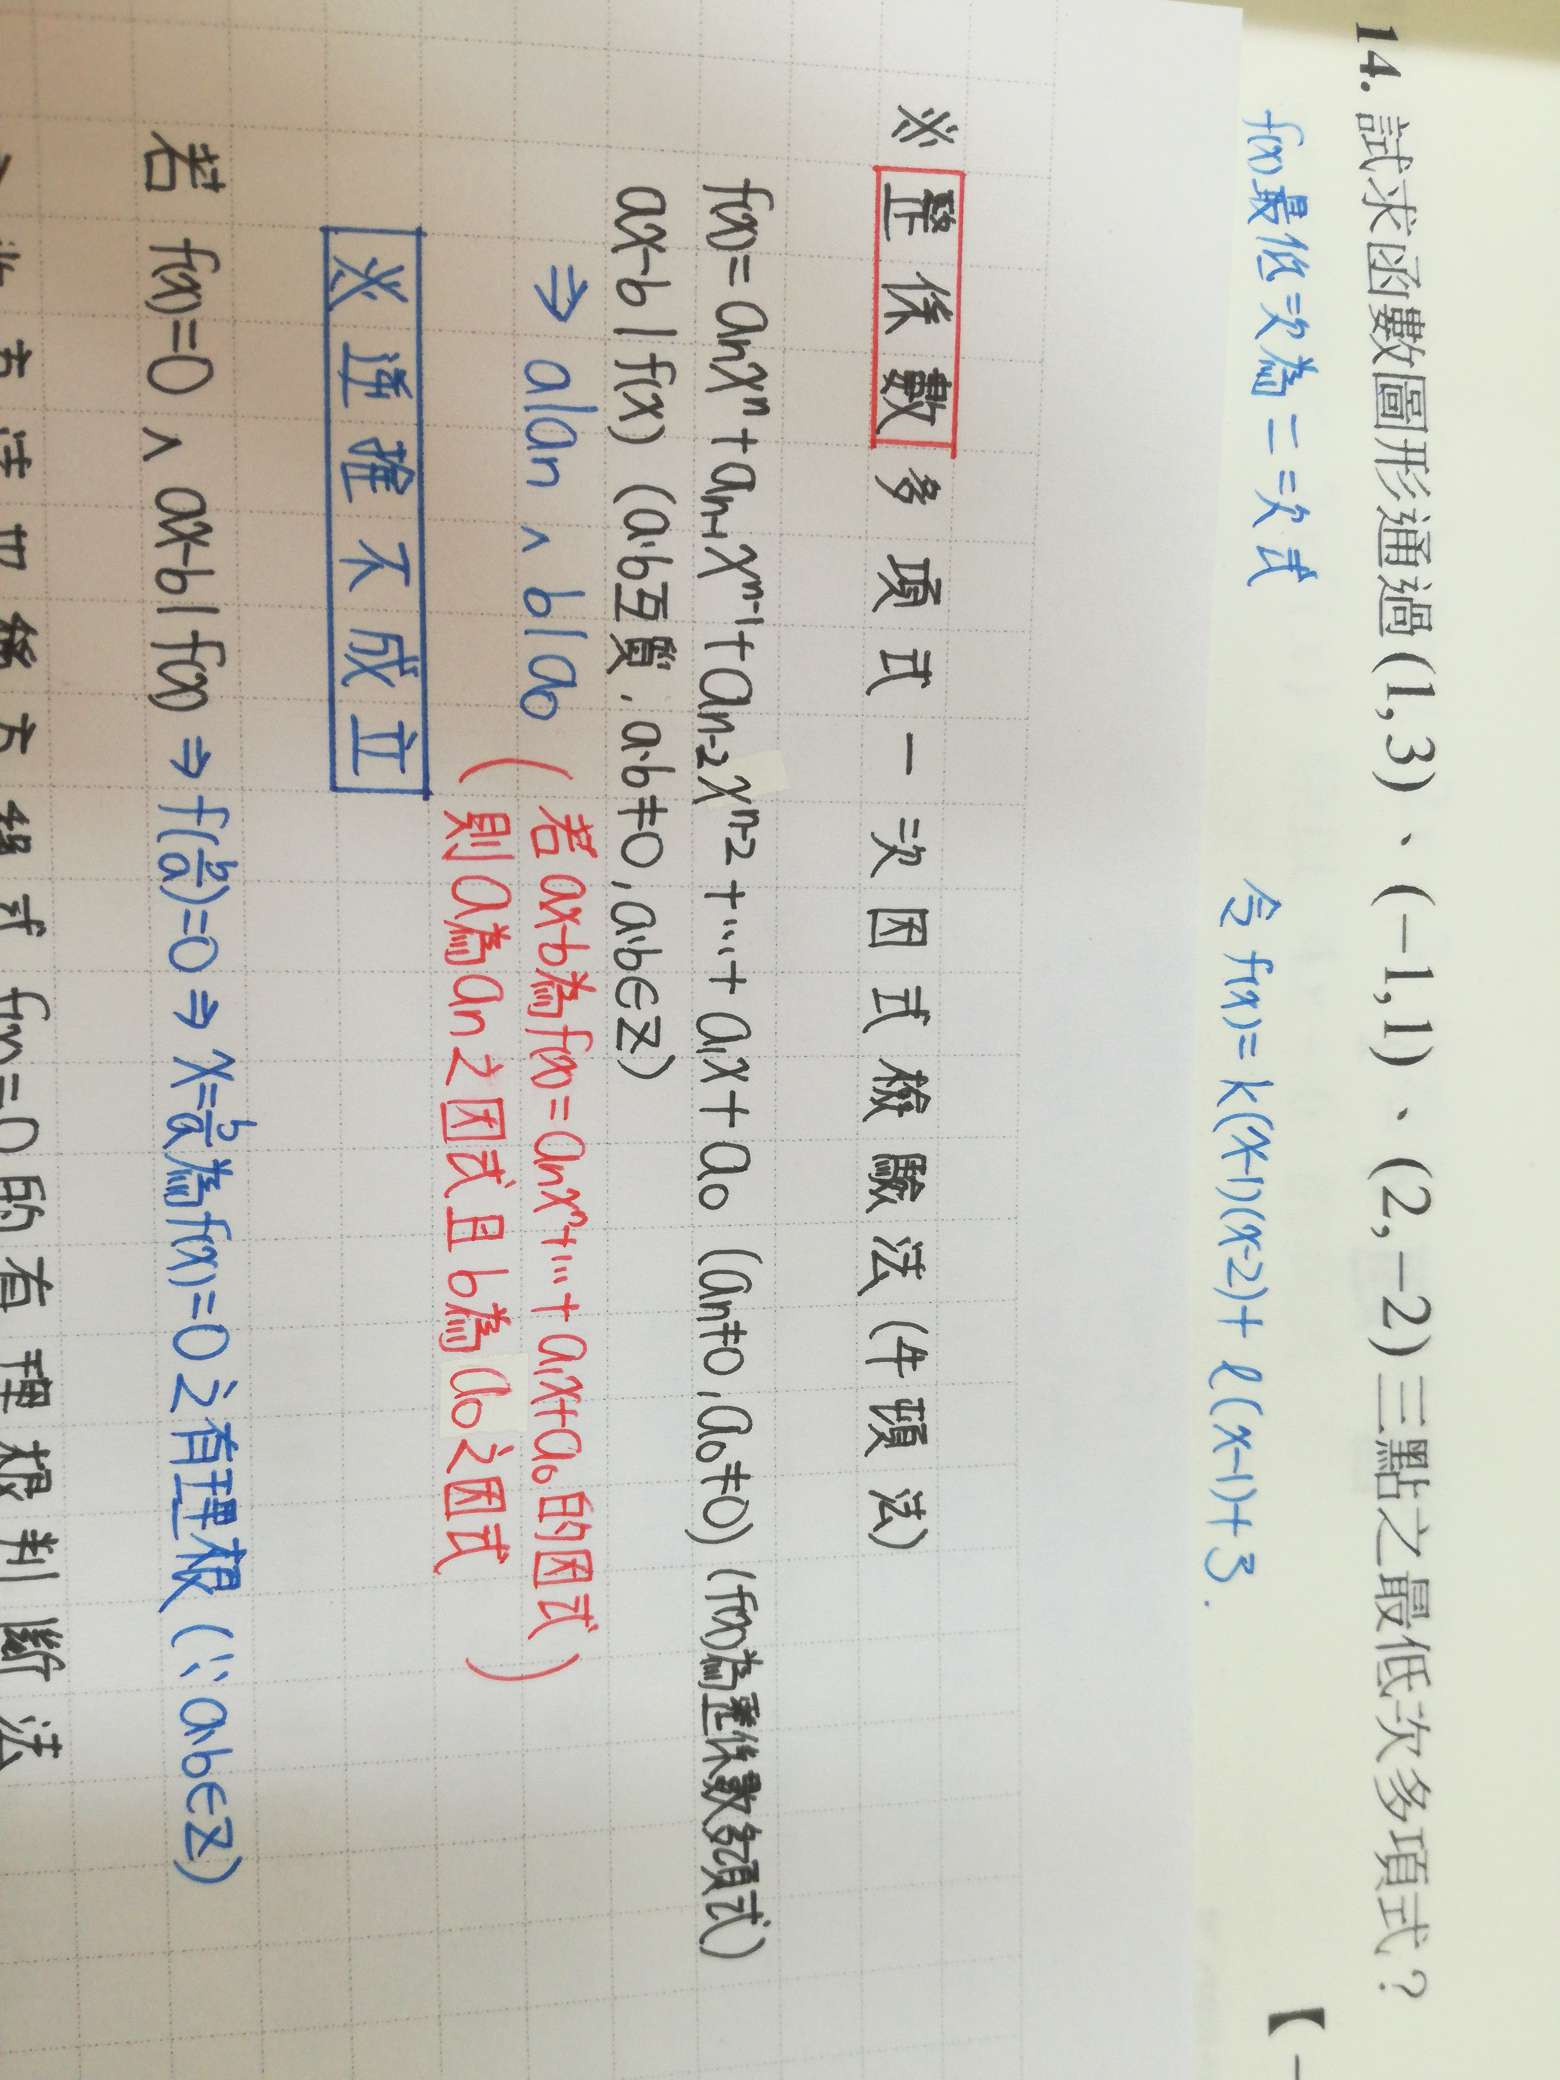 14. 試求函數圖形通過(1,3)、(-1,1)、(2,-2)三點之最低次多項式?
f(x)最低次為二次式 令f(x)=k(x-1)(x-2)+l(x-1)+3.
【-
※整係數多項式一次因式檢驗法(牛頓法)
f(x)=aₙxⁿ+aₙ₋₁xⁿ⁻¹+aₙ₋₂xⁿ⁻²+…+a₁x+a₀ (aₙ≠0,a₀≠0) (f(x)為整係數多項式)
ax-b|f(x) (a.b互質,a.b≠0,a.b∈Z)
⇒ a|aₙ ∧ b|a₀ (若ax-b為f(x)=aₙxⁿ+…+a₁x+a₀的因式)
(則a為aₙ之因式且b為a₀之因式)
※逆推不成立
若 f(x)=0 ∧ ax-b|f(x) ⇒ f(b/a)=0 ⇒ x=b/a為f(x)=0之有理根 (∵a,b∈Z)
f(x)=0的有理根判斷法